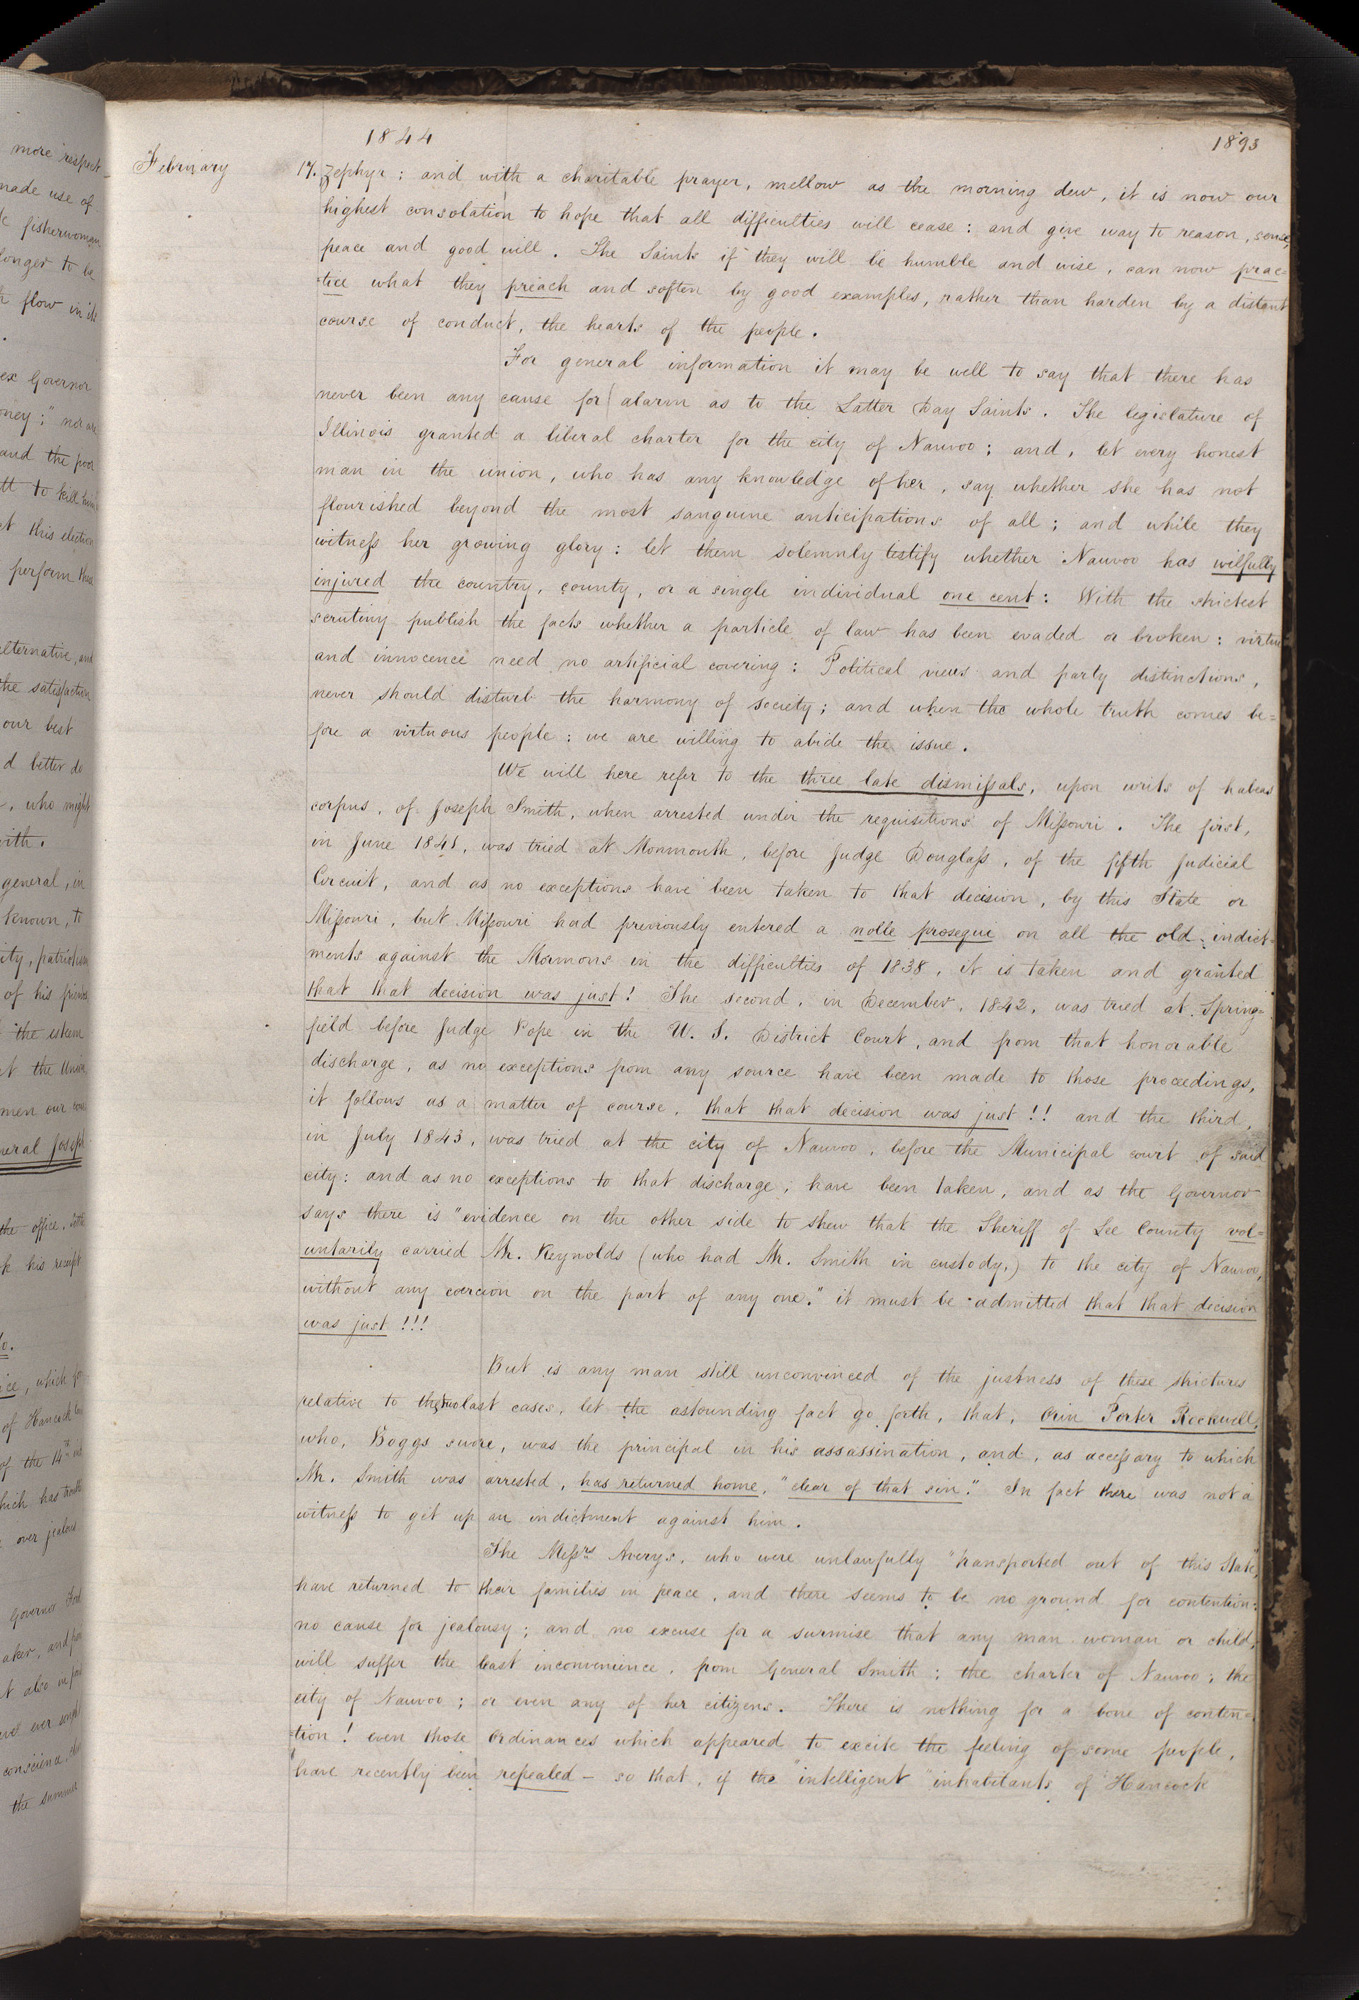 more respect
made use of
fisherwoman
longer to be
flow in its
ex Governor
oney;" nor are
and the poor
to kill him
this election
perform this
alternative, and
the satisfaction
our best
d better do
, who might
with.
general, in
known, to
ity, patriotism
of his friends
the esteem
the Union
men our
neral Joseph
the office.
his receipt
ice, which
of Hancock
of the 14th
which has
over jealous
Governor Ford
aker, and
also in
ever
conscience.
the summer
1844
1893
February
17. Zephyr; and with a charitable prayer, mellow as the morning dew, it is now our
highest consolation to hope that all difficulties will cease: and give way to reason, sense,
peace and good will. The Saints if they will be humble and wise, can now prac-
-tice what they preach and soften by good examples, rather than harden by a distant
course of conduct, the hearts of the people.
For general information it may be well to say that there has
never been any cause for alarm as to the Latter Day Saints. The legislature of
Illinois granted a liberal charter for the city of Nauvoo; and, let every honest
man in the union, who has any knowledge of her, say whether she has not
flourished beyond the most sanguine anticipations of all; and while they
witness her growing glory: let them solemnly testify whether Nauvoo has wilfully
injured the country, county, or a single individual one cent: With the strictest
scrutiny publish the facts whether a particle of law has been evaded or broken: virtue
and innocence need no artificial covering: Political views and party distinctions,
never should disturb the harmony of society; and when the whole truth comes be=
fore a virtuous people: we are willing to abide the issue.
We will here refer to the three late dismissals, upon writs of habeas
corpus, of Joseph Smith, when arrested under the requisitions of Missouri. The first,
in June 1841, was tried at Monmouth, before Judge Douglass, of the fifth Judicial
Circuit, and as no exceptions have been taken to that decision, by this State or
Missouri, but Missouri had previously entered a nolle prosequi on all the old indict-
ments against the Mormons in the difficulties of 1838, it is taken and granted
that that decision was just! The second, in December, 1842, was tried at Spring=
field before Judge Pope in the U. S. District Court, and from that honorable
discharge, as no exceptions from any source have been made to those proceedings,
it follows as a matter of course, that that decision was just!! and the third,
in July 1843, was tried at the city of Nauvoo, before the Municipal court of said
city: and as no exceptions to that discharge, have been taken, and as the Governor
says there is "evidence on the other side to shew that the Sheriff of Lee County vol=
untarily carried Mr. Reynolds (who had Mr. Smith in custody,) to the city of Nauvoo,
without any coercion on the part of any one." it must be admitted that that decision
was just!!!
But is any man still unconvinced of the justness of these strictures
relative to the two last cases, let the astounding fact go forth, that, Orin Porter Rockwell,
who, Boggs swore, was the principal in his assassination, and, as accessary to which
Mr. Smith was arrested, has returned home, "clear of that sin." In fact there was not a
witness to get up an indictment against him.
The Messrs Averys, who were unlawfully "transported out of this State",
have returned to their families in peace, and there seems to be no ground for contention:
no cause for jealousy; and no excuse for a surmise that any man woman or child,
will suffer the least inconvenience, from General Smith; the charter of Nauvoo; the
city of Nauvoo; or even any of her citizens. There is nothing for a bone of conten-
-tion! even those Ordinances which appeared to excite the feeling of some people,
have recently been repealed — so that, if the "intelligent" inhabitants of Hancock